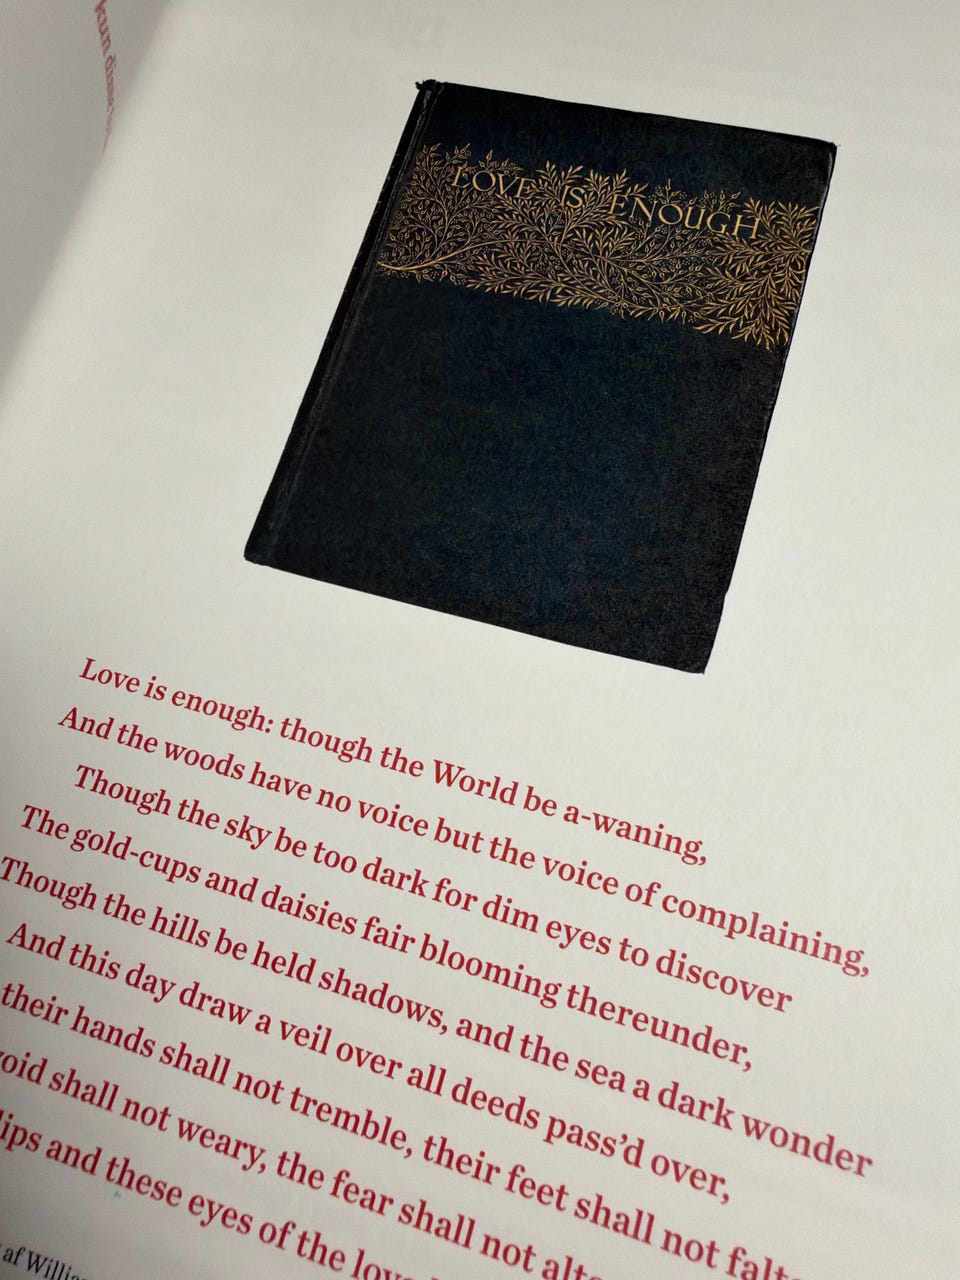 kun
LOVE IS ENOUGH
Love is enough: though the World be a-waning,
And the woods have no voice but the voice of complaining,
Though the sky be too dark for dim eyes to discover
The gold-cups and daisies fair blooming thereunder,
Though the hills be held shadows, and the sea a dark wonder
And this day draw a veil over all deeds pass’d over,
their hands shall not tremble, their feet shall not
shall not weary, the fear shall not
lips and these eyes of the
af